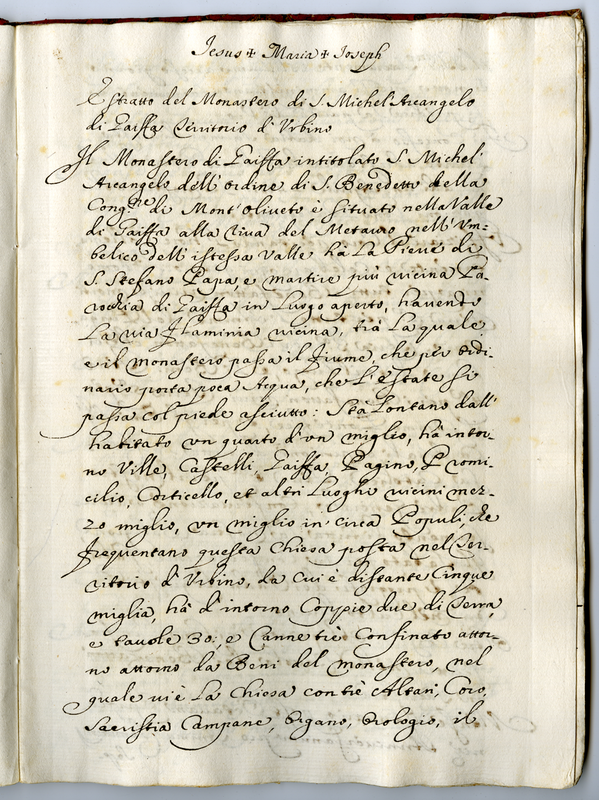 Jesus + Maria + Joseph
Estratto del Monastero di S. Michel' Arcangelo
di Gaiffa Territorio d' Urbino
Il Monastero di Gaiffa intitolato S. Michel'
Arcangelo dell' ordine di S. Benedetto della
Cong.ne di Mont' Oliveto è situato nella Valle
di Gaiffa alla riva del Metauro nell' Um=
belico dell' istessa Valle hà La Pieve di
S. Stefano Papa e martire più vicina Pa-
rochia di Gaiffa in Luogo aperto, havendo
La via Flaminia vicina, trà La quale
e il monastero passa il fiume, che per ordi-
nario porta poca Acqua, che L'estate si
passa col piede asciutto: Stà Lontano dall'
habitato vn quarto d' vn miglio, hà intor-
no Ville, Castelli, Gaiffa, Pagino, Promi-
cilio, Corticello, et altri Luoghi vicini mez-
zo miglio, vn miglio in circa Populi, che
frequentano questa Chiesa posta nel Ter-
ritorio d' Urbino, da cui è distante Cinque
miglia, hà d' intorno Coppie due di Terra,
e tavole 30; e Canne trè Confinato attor-
no attorno da Beni del monastero, nel
quale vi è La Chiesa con trè Altari, Coro,
Sacristia Campane, Organo, Orologio, il